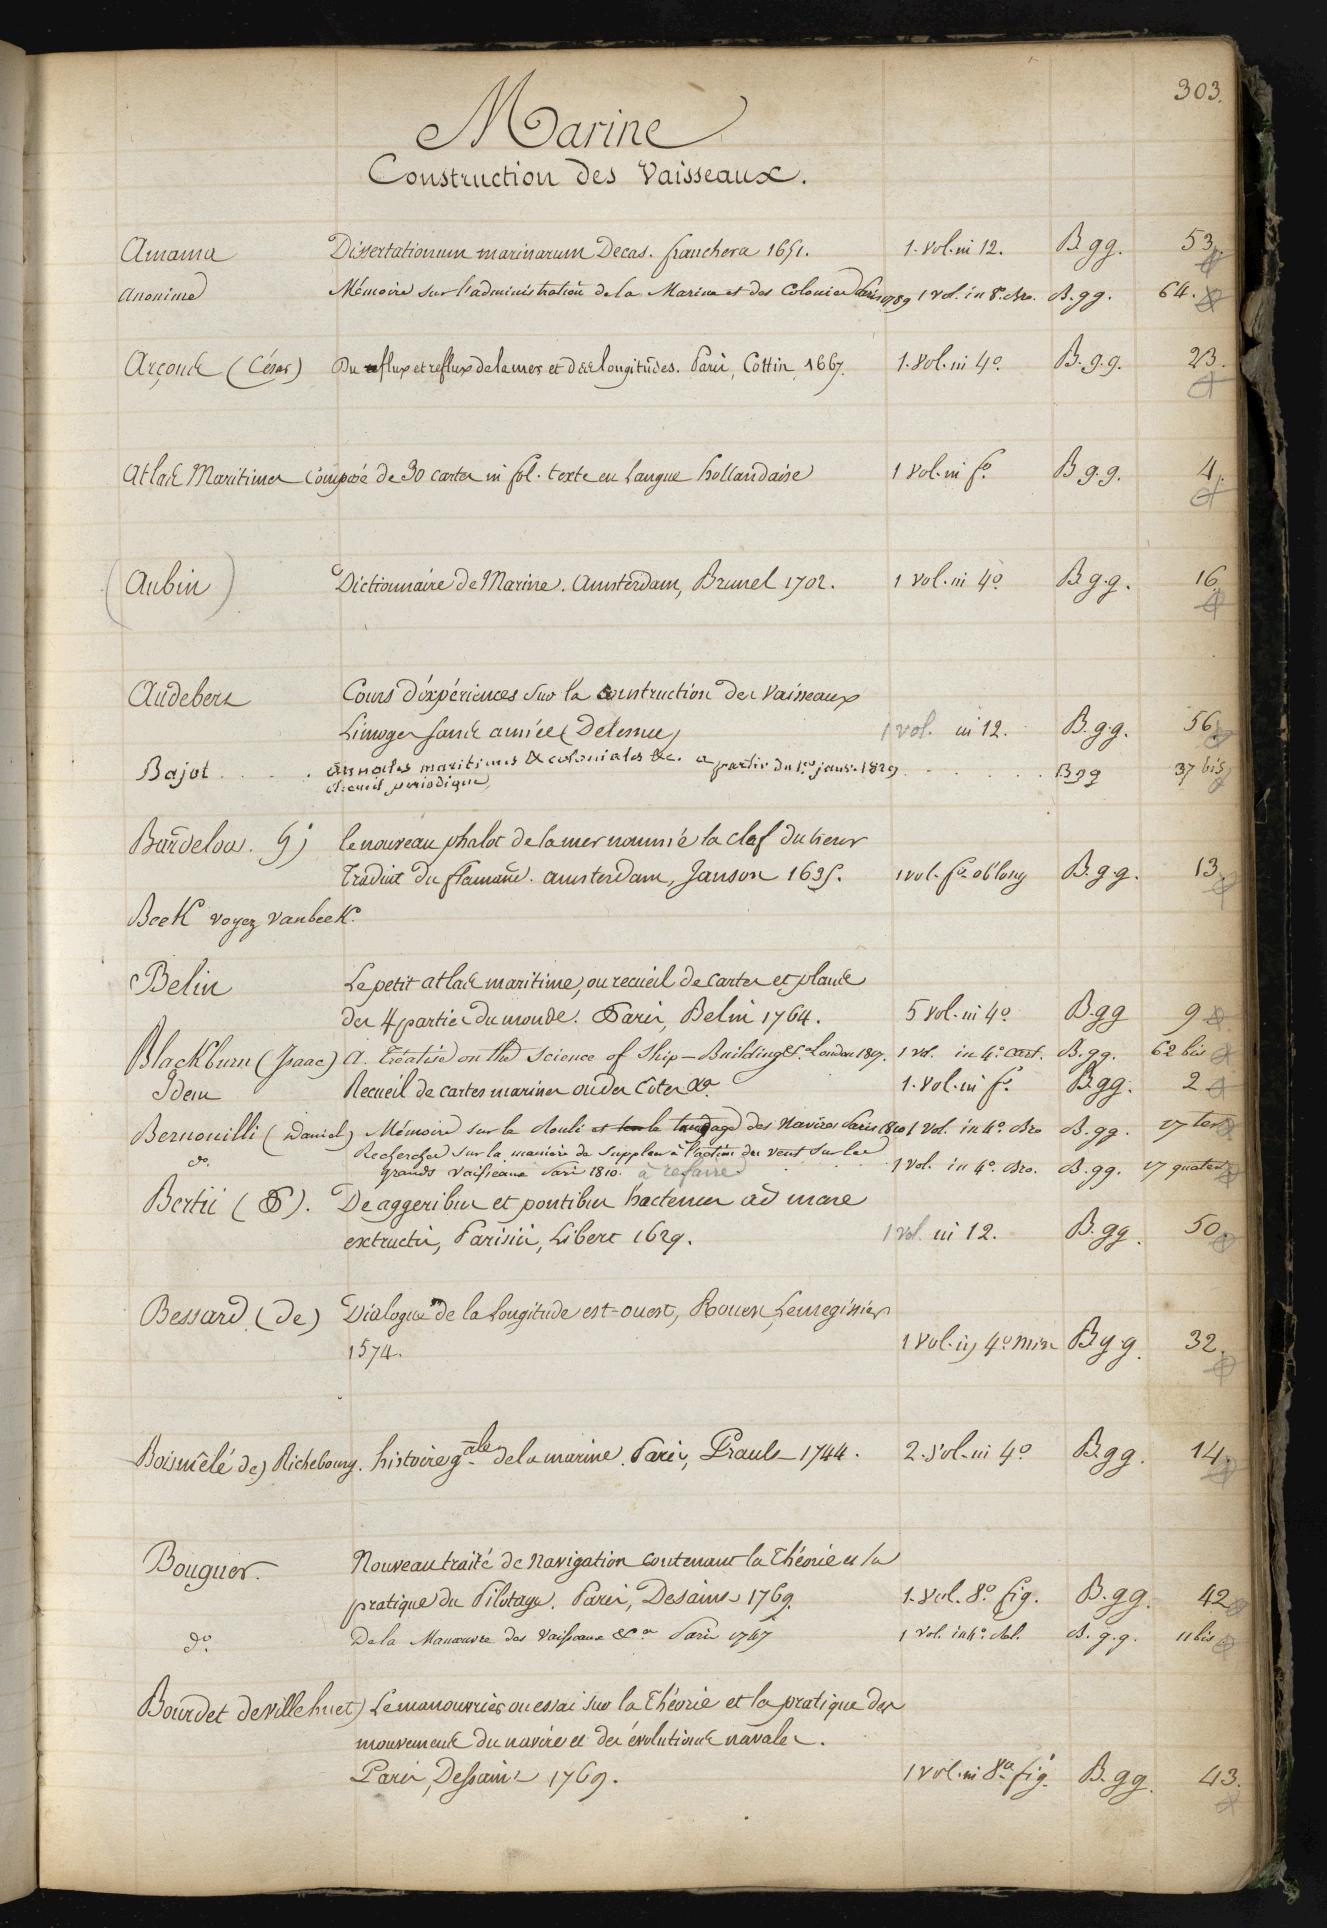 303.
Marine
Construction des Vaisseaux.
Amama Dissertationum marinarum Decas. franchera 1651. 1. vol. in 12. B. gg. 53.
anonime Mémoire sur l'administration de la Marine et des Colonies Paris 1789 1 vol. in 8º. Bro. B. gg. 64.
Arçons (César) Du flux et reflux de la mer et des longitudes. Paris, Cottin, 1667. 1. vol. in 4º. B. g. g. 23.
Atlas Maritimes composé de 30 cartes in fol. texte en langue hollandaise 1 vol. in fº. B g. g. 4.
(Aubin) Dictionnaire de Marine. Amsterdam, Brunel 1702. 1 vol. in 4º. B g. g. 16
Audebers Cours d'éxpériences sur la construction des vaisseaux
Limoges sans année (Delesme) 1 vol. in 12. B. g. g. 56.
Bajot . . . . . annales maritimes & coloniales &c. a partir du 1er janvr. 1829 . . . . . B gg 37 bis
Recueil periodique
Bardelou. g j le nouveau phalot de la mer nommé la clef du tresor
Traduit du flamand. amsterdam, Janson 1635. 1 vol. fº. oblong B. g. g. 13.
Beek voyez vanbeek.
Belin Le petit atlas maritime, ou recueil de cartes et plans
des 4 parties du monde. Paris, Belin 1764. 5 vol. in 4º B. gg 9
Blackburn (Isaac) a. Treatise on the science of Ship-Building &c. London 1817. 1 vol. in 4º. cart. B. gg. 62 bis
Idem Recueil de cartes marines ou des côtes &a. 1. vol. in fº. B. gg. 2
Bernouilli (Daniel) Mémoire sur le Roulis et sur le tangage des Navires Paris 1810 1 vol. in 4º. Bro B. gg. 17 ter
dº. Recherches sur la manière de suppléer à l'action du vent sur les
grands vaisseaux Paris 1810. à refaire . . . 1 vol. in 4º. Bro. B. gg. 17 quater
Bertii (P). De aggeribus et pontibus hactenus ad mare
extructis, Parisiis, Libert 1629. 1 vol. in 12. B. gg. 50.
Bessard (de) Dialogue de la Longitude est-ouest, Rouen, Lemegissier
1574. 1 vol. in 4º. min B g. g. 32.
Boismêlé de) Richebourg. histoire gale. de la marine. Paris, Prault 1744. 2. vol. in 4º B. gg. 14.
Bouguer. Nouveau traité de Navigation contenant la Théorie et la
pratique du Pilotage. Paris, Desaint 1769. 1. vol. 8º. fig. B. gg. 42
dº. De la Manœuvre des vaisseaux &a. Paris 1757 1 vol. in 4º. Rel. B. g. g. 11 bis
Bourdet de villehuet) Le manœuvrier ou essai sur la Théorie et la pratique des
mouvements du navire et des évolutions navales.
Paris, Dessaint 1769. 1 vol. in 8º. fig. B. gg. 43.